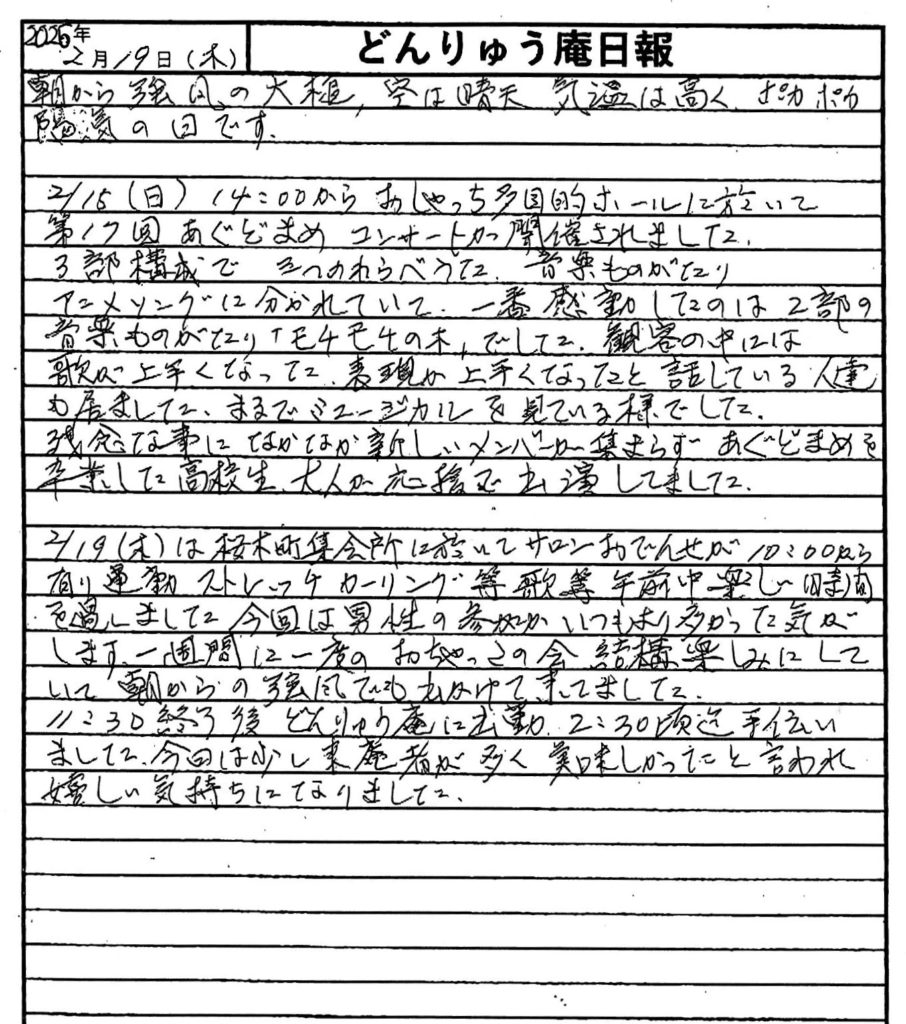 2026年
2月19日(木) どんりゅう庵日報
朝から強風の大槌、空は晴天 気温は高く、ポカポカ
陽気の日です。
2/15(日) 14:00から おしゃっち多目的ホールに於いて
第17回 あぐどまめ コンサートが開催されました。
3部構成で 三つのわらべうた、音楽ものがたり
アニメソングに分かれていて、一番感動したのは2部の
音楽ものがたり「モチモチの木」でした。観客の中には
歌が上手くなった、表現が上手くなったと話している人達
も居ました、まるでミュージカルを見ている様でした。
残念な事になかなか新しいメンバーが集まらず あぐどまめを
卒業した高校生、大人が応援で出演してました。
2/19(木)は桜木町集会所に於いてサロンおでんせが10:00から
有り運動 ストレッチ カーリング等歌等午前中楽しい時間
を過しました 今回は男性の参加がいつもより多かった気が
します、一週間に一度の おちゃっこの会 結構楽しみにして
いて 朝からの強風でも出かけて来てました。
11:30終了後 どんりゅう庵に出勤、2:30頃迄手伝い
ました、今日は少し来庵者が多く 美味しかったと言われ
嬉しい気持ちになりました。